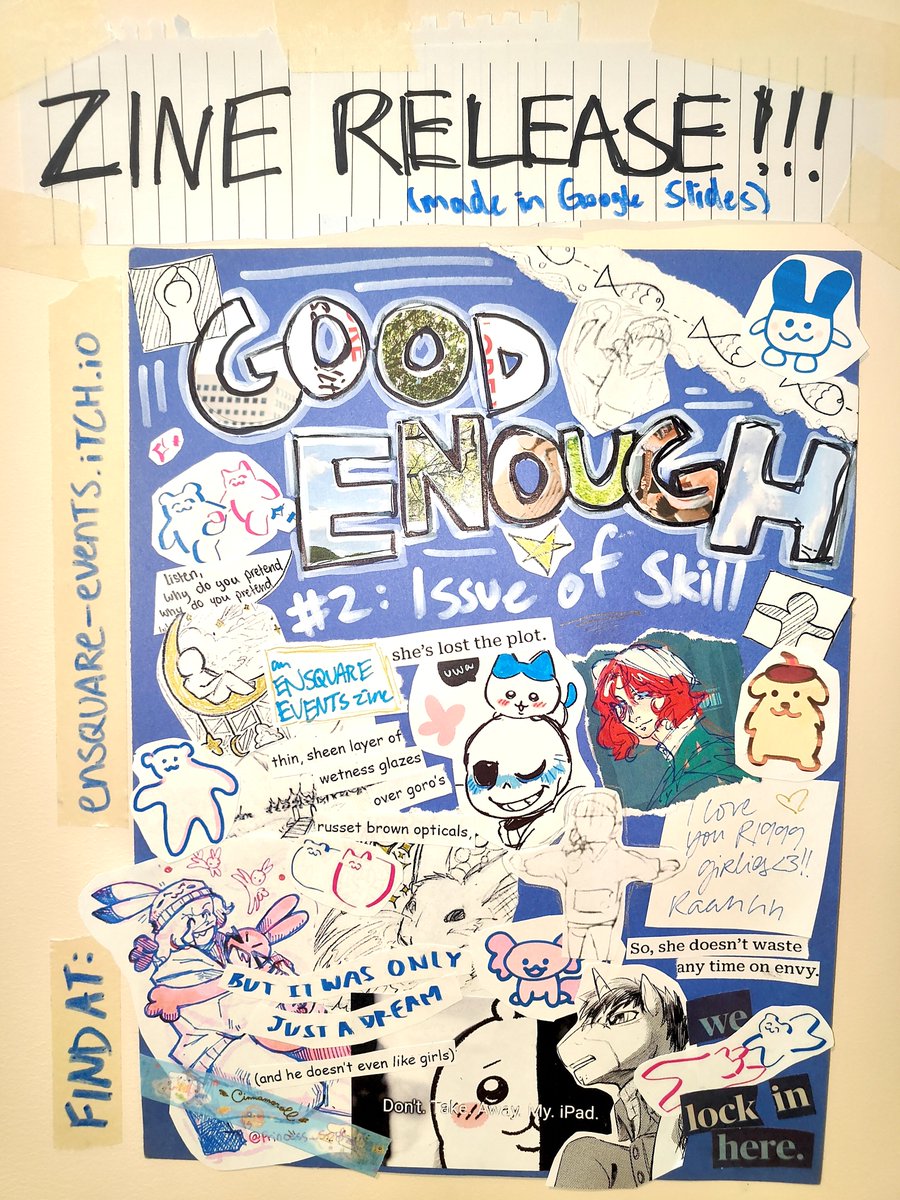 ZINE RELEASE!!!
(made in Google Slides)
FIND AT: ensquare-events.itch.io
GOOD
ENOUGH
#2: Issue of Skill
listen,
why do you pretend
why do you pretend
an
ENSQUARE
EVENTS zine
she's lost the plot.
uwa
thin, sheen layer of
wetness glazes
over goro's
russet brown opticals,
I love
you R1999
girlies<3!!
Raahhh
So, she doesn't waste
any time on envy.
BUT IT WAS ONLY
JUST A DREAM
(and he doesn't even like girls)
Don't. Take. Away. My. iPad.
Cinnamoroll
we
lock in
here.